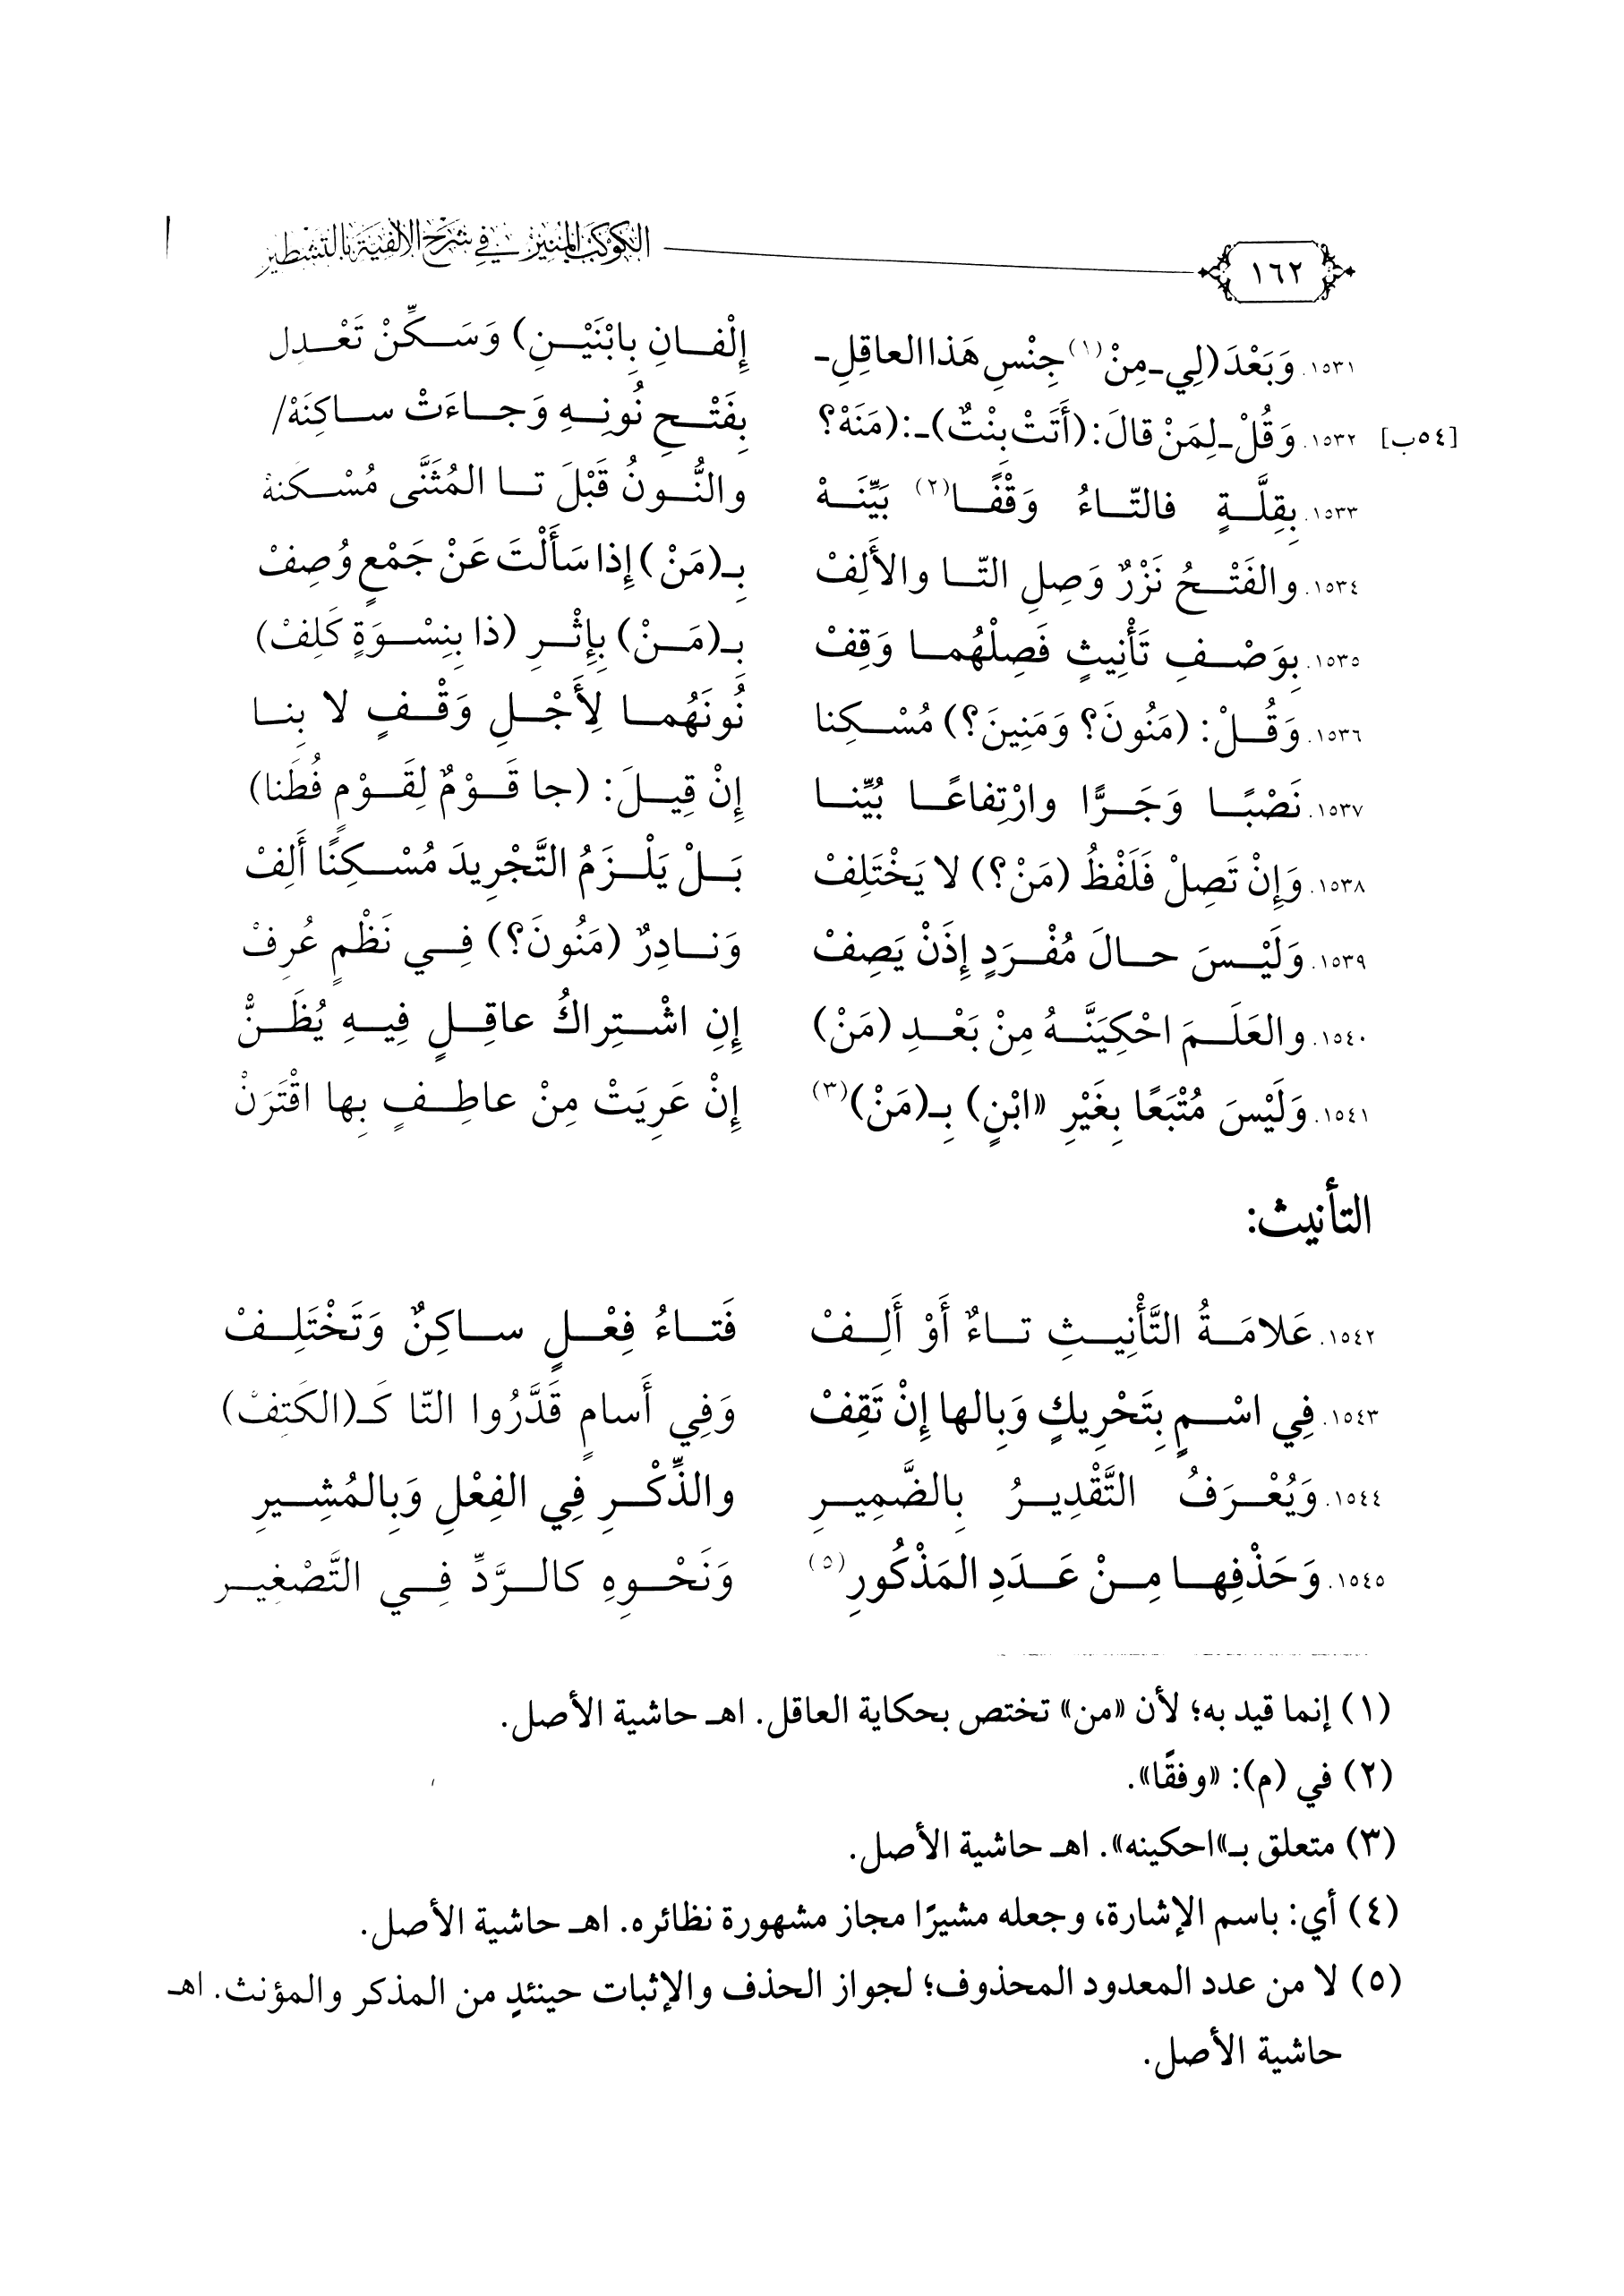 ١٦٢ الكوكب المنير في شرح الألفية بالتشطير
١٥٣١. وَبَعْدَ (لِي ـ مِنْ(١) جِنْسِ هَذا العاقِلِ ـ إِلْفـانِ بِابْنَيْـنِ) وَسَـكِّنْ تَعْـدِلِ
[٥٤ب] ١٥٣٢. وَقُلْ ـ لِمَنْ قالَ: (أَتَتْ بِنْتٌ) ـ: (مَنَهْ؟ بِفَتْـحِ نُونِـهِ وَجـاءَتْ ساكِنَهْ/
١٥٣٣. بِقِلَّـةٍ فالتّـاءُ وَقْفًـا(٢) بَيِّنَـهْ والنُّـونُ قَبْلَ تـا المُثَنَّى مُسْـكَنهْ
١٥٣٤. والفَتْـحُ نَزْرٌ وَصِلِ التّـا والأَلِفْ بِـ(مَنْ) إِذا سَأَلْتَ عَنْ جَمْعٍ وُصِفْ
١٥٣٥. بِوَصْـفِ تَأْنِيثٍ فَصِلْهُمـا وَقِفْ بـ(مَـنْ) بِإِثْـرِ (ذا بِنِسْـوَةٍ كَلِفْ)
١٥٣٦. وَقُـلْ: (مَنُونَ؟ وَمَنِينَ؟) مُسْـكِنا نُونَهُمـا لِأَجْـلِ وَقْـفٍ لا بِنـا
١٥٣٧. نَصْبًـا وَجَـرًّا وارْتِفاعًـا بُيِّنـا إِنْ قِيـلَ: (جا قَـوْمٌ لِقَـوْمٍ فُطَنا)
١٥٣٨. وَإِنْ تَصِلْ فَلَفْظُ (مَنْ؟) لا يَخْتَلِفْ بَـلْ يَلْـزَمُ التَّجْرِيدَ مُسْـكِنًا أَلِفْ
١٥٣٩. وَلَيْـسَ حـالَ مُفْـرَدٍ إِذَنْ يَصِفْ وَنـادِرٌ (مَنُونَ؟) فِـي نَظْمٍ عُرِفْ
١٥٤٠. والعَلَـمَ احْكِيَنَّـهُ مِنْ بَعْـدِ (مَنْ) إِنِ اشْـتِراكُ عاقِـلٍ فِيـهِ يُظَـنُّ
١٥٤١. وَلَيْسَ مُتْبَعًا بِغَيْرِ «ابْنٍ) بِـ(مَنْ)(٣) إِنْ عَرِيَتْ مِنْ عاطِـفٍ بِها اقْتَرَنْ
التأنيث:
١٥٤٢. عَلامَـةُ التَّأْنِيـثِ تـاءٌ أَوْ أَلِـفْ فَتـاءُ فِعْـلٍ سـاكِنٌ وَتَخْتَلِـفْ
١٥٤٣. فِي اسْـمٍ بِتَحْرِيكٍ وَبِالها إِنْ تَقِفْ وَفِي أَسامٍ قَدَّرُوا التّا كَـ(الكَتِفْ)
١٥٤٤. وَيُعْـرَفُ التَّقْدِيـرُ بِالضَّمِيـرِ والذِّكْـرِ فِي الفِعْلِ وَبِالمُشِـيرِ
١٥٤٥. وَحَذْفِهـا مِـنْ عَـدَدِ المَذْكُورِ(٥) وَنَحْـوِهِ كالـرَّدِّ فِـي التَّصْغِيـرِ
(١) إنما قيد به؛ لأن «من» تختص بحكاية العاقل. اهـ حاشية الأصل.
(٢) في (م): «وفقًا».
(٣) متعلق بـ»احكينه». اهـ حاشية الأصل.
(٤) أي: باسم الإشارة، وجعله مشيرًا مجاز مشهورة نظائره. اهـ حاشية الأصل.
(٥) لا من عدد المعدود المحذوف؛ لجواز الحذف والإثبات حينئذٍ من المذكر والمؤنث. اهـ
حاشية الأصل.